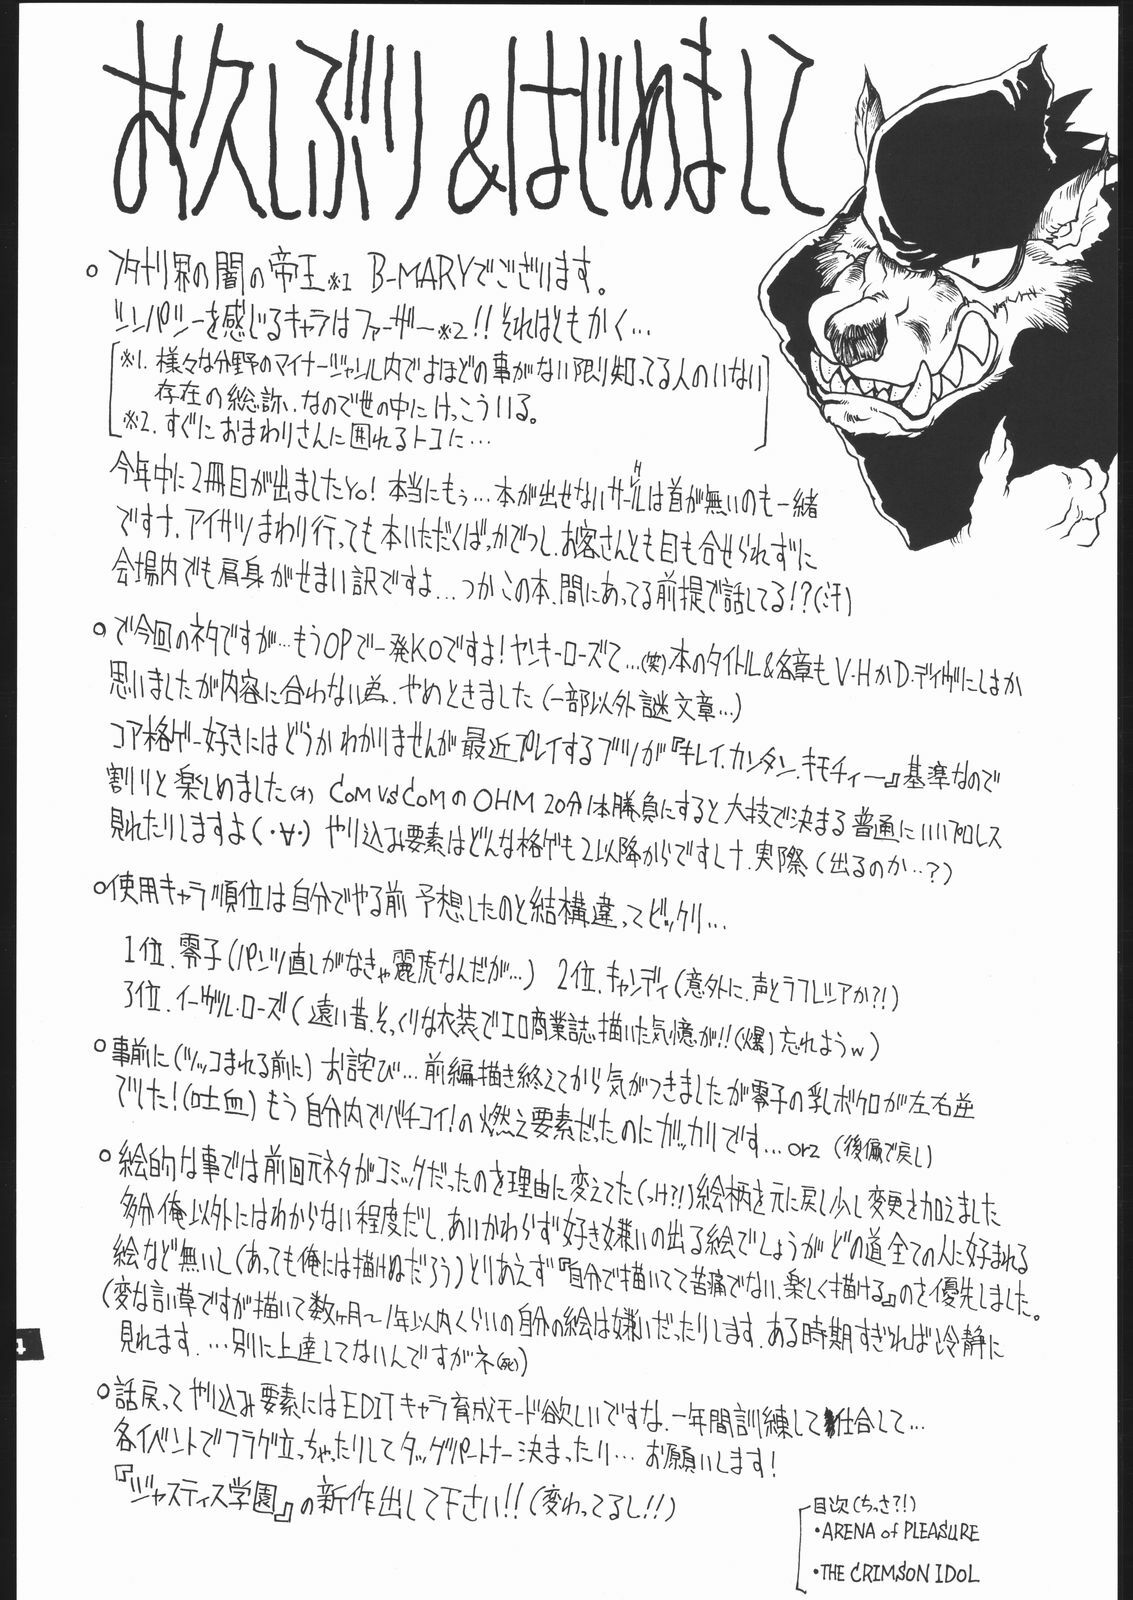 お久しぶり&はじめまして
○フタナリ界の闇の帝王※1 B-MARYでございます。
シンパシーを感じるキャラはファーザー※2!!それはともかく…
※1.様々な分野のマイナージャンル内でよほどの事がない限り知ってる人のいない
存在の総称、なので世の中にけっこういる。
※2.すぐにおまわりさんに囲れるトコに…
今年中に2冊目が出ましたYo!本当にもぅ…本が出せないサークルは首が無いのも一緒
ですナ.アイサツまわり行っても本いただくばっかでっし、お客さんとも目も合せられずに
会場内でも肩身がせまい訳ですよ…つかこの本、間にあってる前提で話してる!?(汗)
○で今回のネタですが…もうOPで一発KOですよ!ヤンキーローズて…(笑)本のタイトル&各章もV・HかD・デイヴにしよか
思いましたが内容に合わない為、やめときました(一部以外謎文章…)
コア格ゲー好きにはどうかわかりませんが最近プレイするブツが『キレイ.カンタン.キモチィー』基準なので
割りと楽しめました(オ) CoM vs CoMのOHM 20分1本勝負にすると大技で決まる普通にいいプロレス
見れたりしますよ(・∀・) やり込み要素はどんな格ゲも2以降からですしナ.実際(出るのか…?)
○使用キャラ順位は自分でやる前予想したのと結構違ってビックリ…
1位.零子(パンツ直しがなきゃ麗虎なんだが…) 2位.キャンディ(意外に、声とラフレシアか?!)
3位.イーヴル・ローズ(遠い昔.そっくりな衣装でエロ商業誌描いた気憶が!!(爆)忘れようw)
○事前に(ツッコまれる前に)お詫び…前編描き終えてから気がつきましたが零子の乳ボクロが左右逆
でした!(吐血)もう自分内でバチコイ!の燃え要素だったのにガッカリです…orz (後編で戻し)
○絵的な事では前回元ネタがコミックだったのを理由に変えてた(っけ?!)絵柄を元に戻し少し変更を加えました
多分俺以外にはわからない程度だし.あいかわらず好き嫌いの出る絵でしょうがどの道全ての人に好まれる
絵など無いし(あっても俺には描けぬだろう)とりあえず『自分で描いてて苦痛でない、楽しく描ける』のを優先しました。
(変な言い草ですが描いて数ヶ月〜1年以内くらいの自分の絵は嫌いだったりします.ある時期すぎれば冷静に
見れます.…別に上達してないんですがネ(死))
○話戻ってやり込み要素にはEDITキャラ育成モード欲しいですな.一年間訓練して仕合して…
各イベントでフラグ立っちゃたりしてタッグパートナー決まったり…お願いします!
『ジャスティス学園』の新作出して下さい!!(変わってるし!!)
目次(ちっさ?!)
・ARENA of PLEASURE
・THE CRIMSON IDOL
4